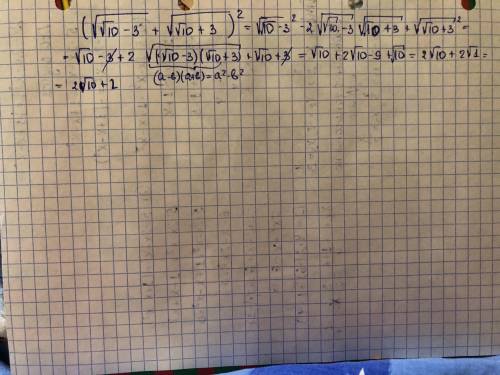 (√(√10 - 3) + √(√10 + 3))² = √(√10 - 3)² - 2√(√10 - 3) √(√10 + 3) + √(√10 + 3)² =
= √10 - 3 + 2 √((√10 - 3)(√10 + 3)) + √10 + 3 = √10 + 2√10 - 9 + √10 = 2√10 + 2√1 =
= 2√10 + 2 (a-b)(a+b) = a² - b²